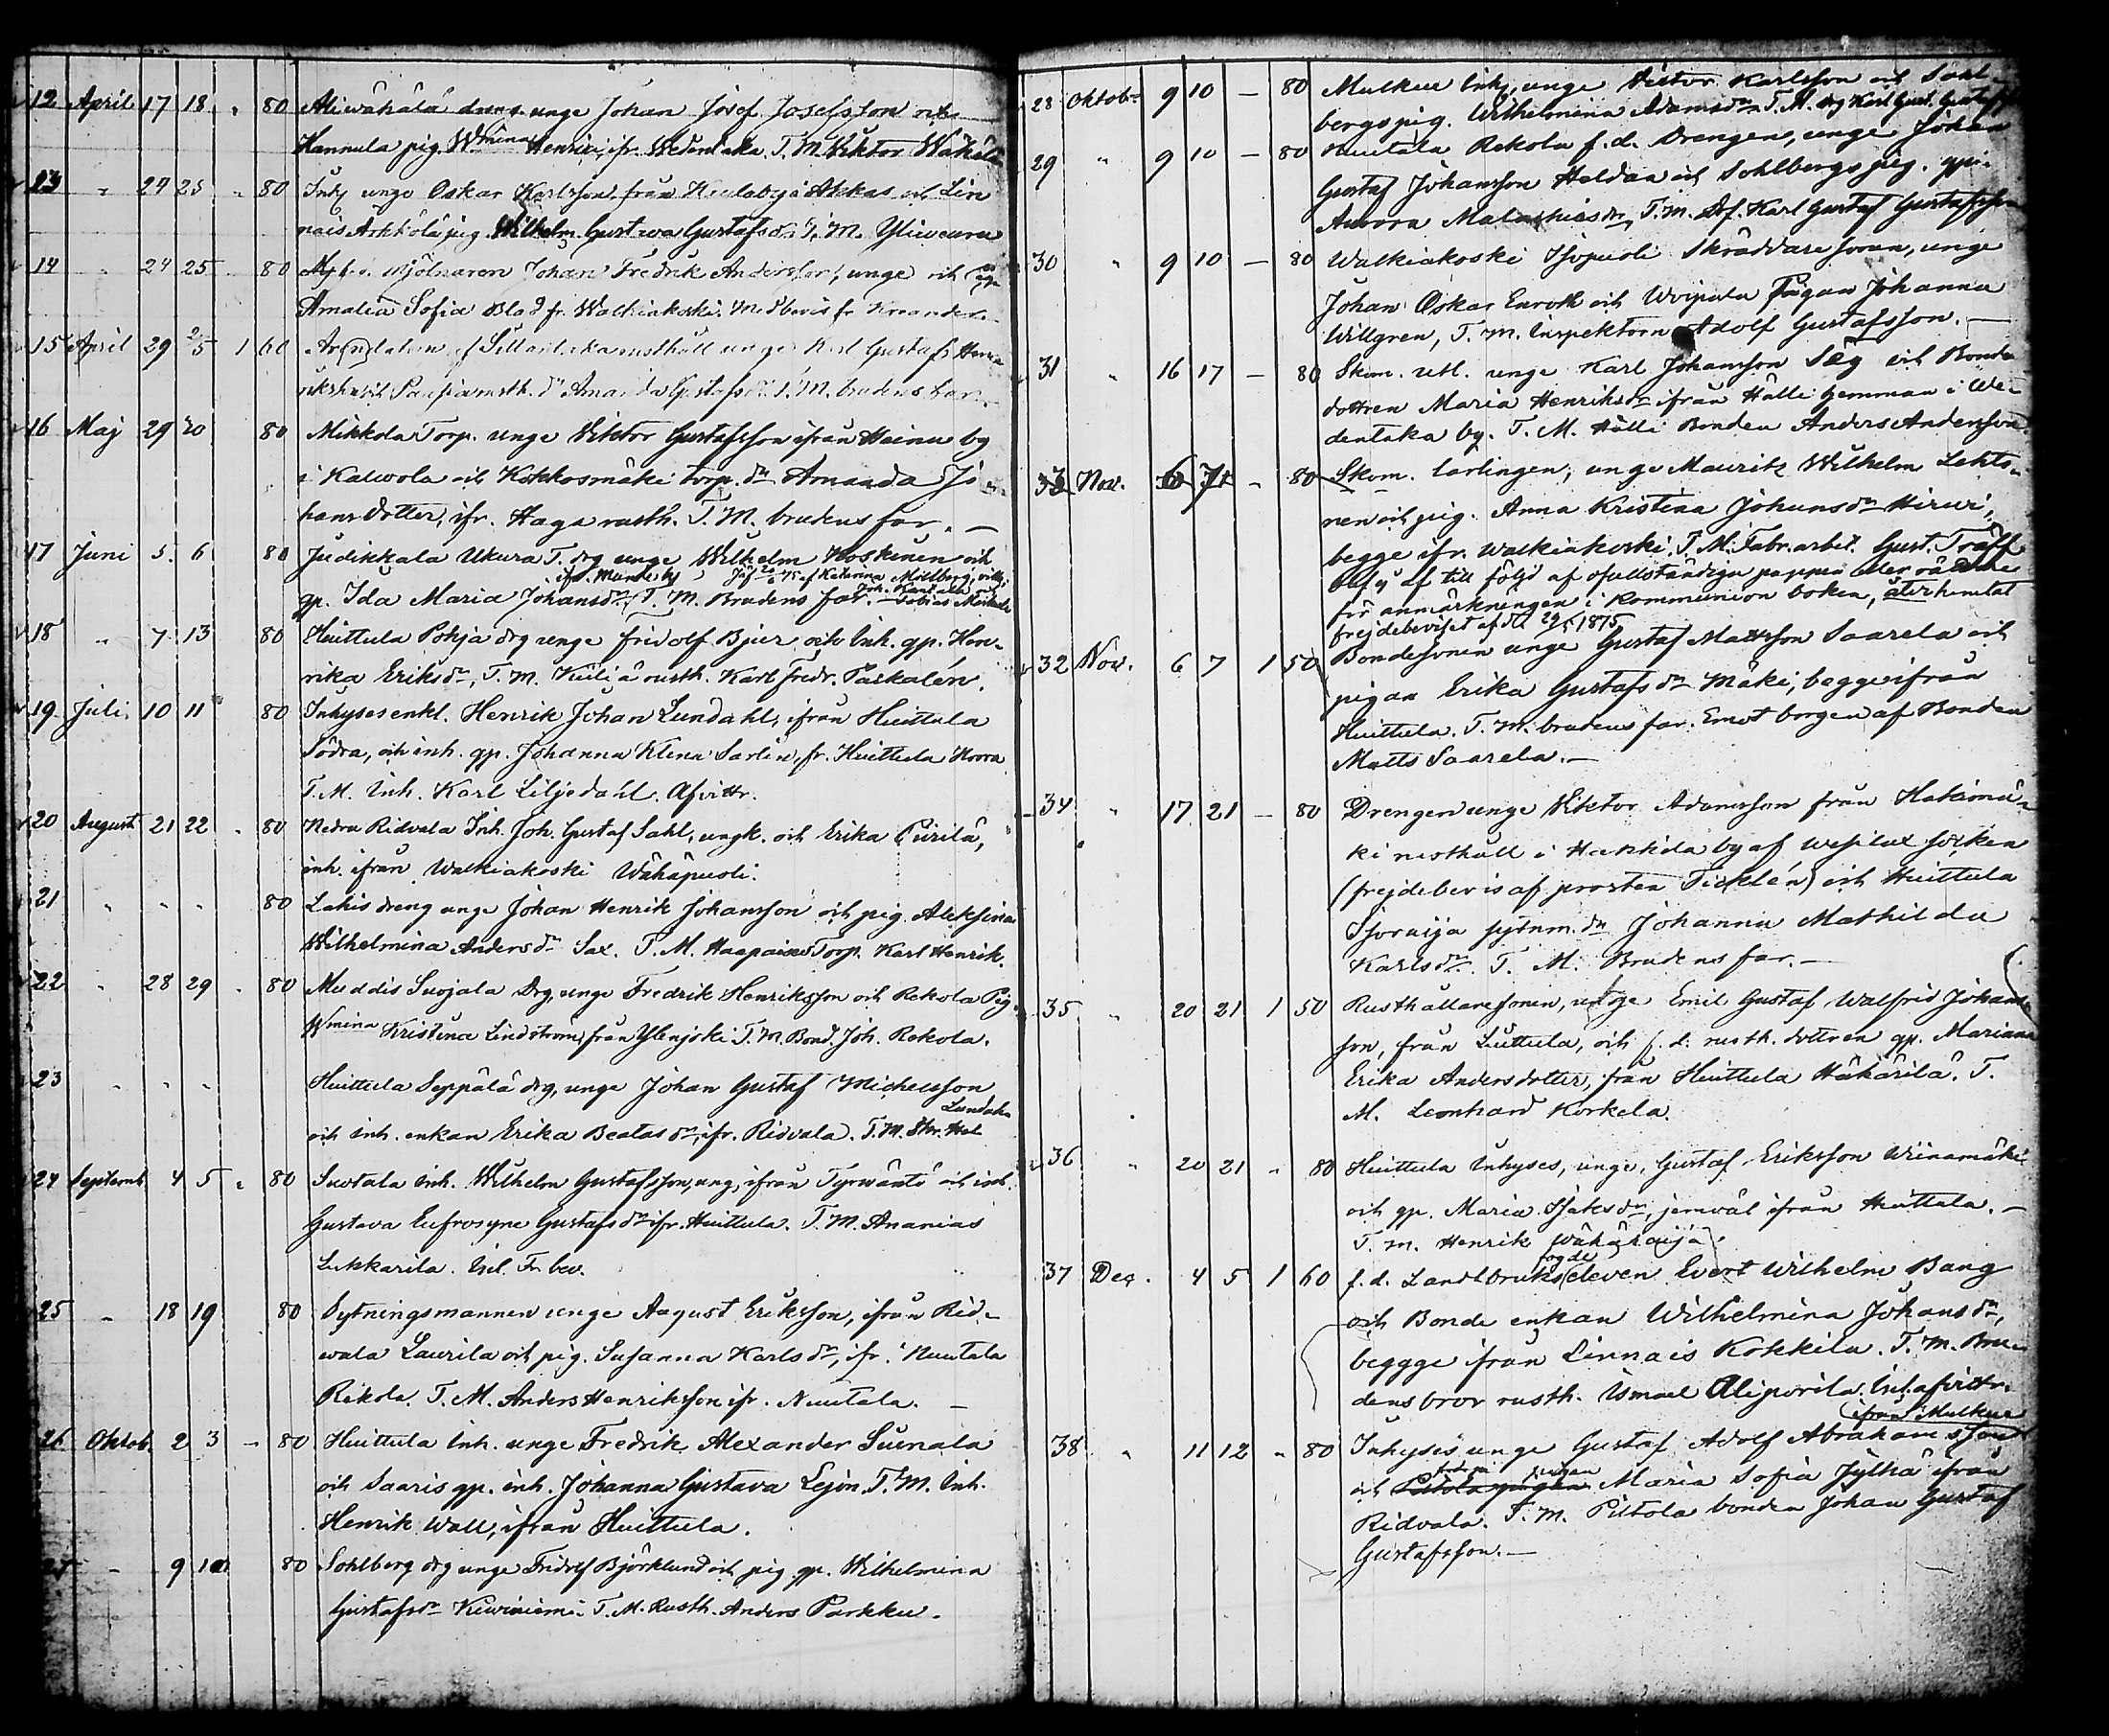 12 April 17 18 " 80 Aliwähälä dreng unge Johan Josef Josefsson och
Hannula pig. Wmina Henrici, ifr. Wedentaka. T. M. Wiktor Wähälä
13 " 24 25 " 80 Inh. unge Oskar Karlsson från Kulabyå Akkas och Lin
nais pig. Wilhelm. Gustava Gustafsdr. T. M.
14 " 24 25 80 Mjölnaren Johan Fredrik Andersson, unge och
Amalia Sofia Blad fr. Walkiakoski. Med bevis fr.
15 April 29 25 1 60 af rusthåll unge Karl Gustaf
rusth. dr Amanda Gustafsdr. T. M. brudens far.
16 Maj 29 30 80 Mikkola Torp. unge Viktor Gustafsson ifrån Heinu by
i Kalvola och Kokkosmäki torp. dr Amanda Jo
hans dotter, ifr. Haga rusth. T. M. brudens far. —
17 Juni 5 6 80 Judikkala Ukura T. drg unge Wilhelm Koskinen och
gp. Ida Maria Johansdr. T. M. Brudens far.
18 " 7 13 80 Huittula Pohja drg unge Fridolf Bjur och Inh. gp. Hen-
rika Eriksdr, T. M. rusth. Karl Fredr. Paskalén.
19 Juli 10 11 80 Inhysesenkl. Henrik Johan Lundahl, ifrån Huittula
Södra, och inh. gp. Johanna Klena Sarlin, fr. Huittula Norra
T. M. Inh. Karl Liljedahl. Afvittr.
20 August 21 22 " 80 Nedra Ridvala Inh. Joh. Gustaf Sahl, ungk. och Erika Purilä,
inh. ifrån Walkiakoski Wähäpuoli.
21 " " " 80 Lahis dreng unge Johan Henrik Johansson och pig. Aleksina
Wilhelmina Andersdr Sax. T. M. Haapaises Torp. Karl Henrik.
22 " 28 29 " 80 Muddis Suojala Drg, unge Fredrik Henriksson och Rekola Pig.
Wmina Kristina Lindström från Ylenjoki T. M. Bond. Joh. Rekola.
23 " " " Huittula Seppälä drg, unge Johan Gustaf Michelsson
och inh. enkan Erika Beatasdr, ifr. Ridvala. T. M. Skr.
24 Septemb 4 5 " 80 Suotala inh. Wilhelm Gustafsson, ung, ifrån Tyrwäntö och inh.
Gustava Eufrosyne Gustafsdr ifr. Huittula. T. M. Ananias
Lukkarila. Inl. Fr bev.
25 " 18 19 80 Sytningsmannen unge August Eriksson, ifrån Rid-
wala Laurila och pig. Susanna Karlsdr, ifr. Nuutala
Rekola. T. M. Anders Henriksson ifr. Nuutala. —
26 Oktob. 2 3 — 80 Huittula Inh. unge Fredrik Alexander Suenala
och Saaris gp. inh. Johanna Gustava Lejon. T. M. Inh.
Henrik Wall, ifrån Huittula.
27 — 9 10 80 Sohlberg drg unge Fridolf Björklund och pig. gp. Wilhelmina
Gustafsdr Kiwiniemi. T. M. Rusth. Anders Parkku.
28 Oktob. 9 10 — 80 Mulkua Inh, unge Victor Karlsson och Sohl-
bergs pig. Wilhelmina Adamsdr. T. M. drg Karl Gust.
29 " 9 10 — 80 Nuutala Rekola f. d. Drengen, unge Johan
Gustaf Johansson Haldaa och Sohlbergs pig. gp.
Aurora Malachiasdr, T. M. Karl Gustaf Gustafsson
30 " 9 10 — 80 Walkiakoski Isopuoli Skräddare sonen, unge
Johan Oskar Enroth och Woipala Pigan Johanna
Willgren, T. M. Inspektorn Adolf Gustafsson. —
31 " 16 17 — 80 Skom. utl. unge Karl Johansson Seg och Bonde
dottren Maria Henriksdr ifrån Hälli hemman i We-
dentaka by. T. M. Hälli Bonden Anders Andersson.
33 Nov. 6 7 - 80 Skom. lärlingen, unge Mauritz Wilhelm Lehto-
nen och pig. Anna Kristina Johansdr Hirwi,
begge ifr. Walkiakoski. T. M. Fabr. arbet. Gust. Träff
till följd af ofullständiga papper
för anmärkningen i kommunion boken, återhemtat
frejdebeviset af d. 29/5 1875
32 Nov. 6 7 1 50 Bondesonen unge Gustaf Mattsson Saarela och
pigan Erika Gustafsdr Mäki, begge ifrån
Huittula. T. M. brudens far. Emot borgen af Bonden
Matts Saarela. —
34 " 17 21 — 80 Drengen unge Viktor Adamsson från Hakimä-
ki rusthåll i Hakkila by af Wesilax socken
(frejdebevis af prosten Ticklén) och Huittula
sytnm. dr Johanna Mathilda
Karlsdr. T. M. Brudens far. —
35 " 20 21 1 50 Rusthållaresonen, unge Emil Gustaf Walfrid Johans
son, från Luttula, och f. d. rusth. dottren gp. Mariana
Erika Andersdotter, från Huittula Häkärilä. T.
M. Leonhard Korkela.
36 " 20 21 " 80 Huittula Inhyses, unge, Gustaf Eriksson Wiinamäki
och gp. Maria Isaksdr, jemväl ifrån Huittula. —
T. M. Henrik
37 Dec. 4 5 1 60 f. d. Landtbruks fogde eleven Evert Wilhelm Bang
och Bonde enkan Wilhelmina Johansdr,
beggge ifrån Linnais Kokkila. T. M. Bru-
dens bror rusth. Ismael Aliporila. Inl. afvittr.
ifrån Mulkua
38 " 11 12 " 80 Inhyses unge Gustaf Adolf Abrahamsson
och pigan Maria Sofia Jylhä ifrån
Ridvala. T. M. Pittola bonden Johan Gustaf
Gustafsson. —